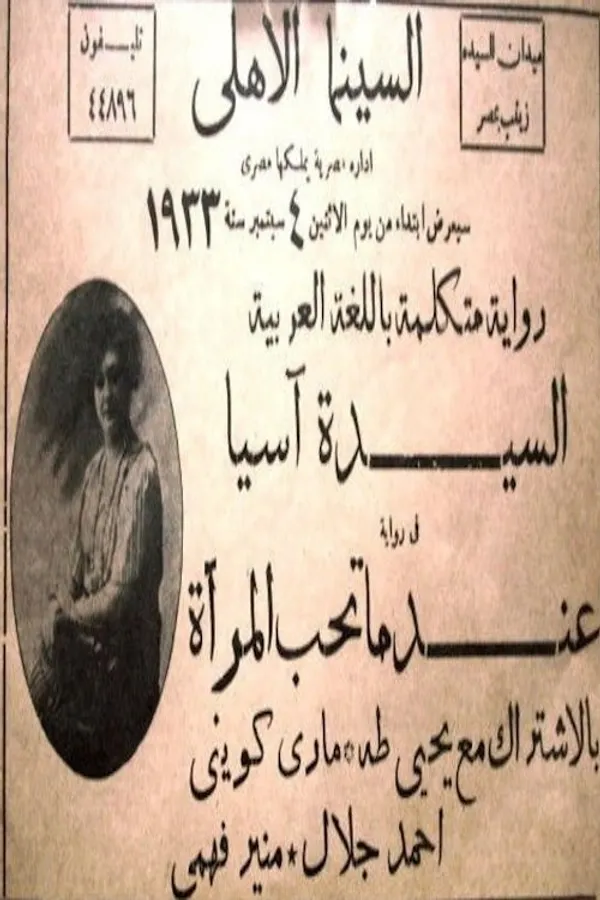 ميدان السيده
زينب بمصر
السينما الاهلى
تليفون
٤٤٨٩٦
اداره مصرية يملكها مصرى
سيعرض ابتداء من يوم الاثنين ٤ سبتمبر سنة ١٩٣٣
رواية متكلمة باللغة العربية
السيدة آسيا
فى رواية
عندما تحب المرآة
بالاشتراك مع يحيى طه * مارى كوينى
احمد جلال * منير فهمى